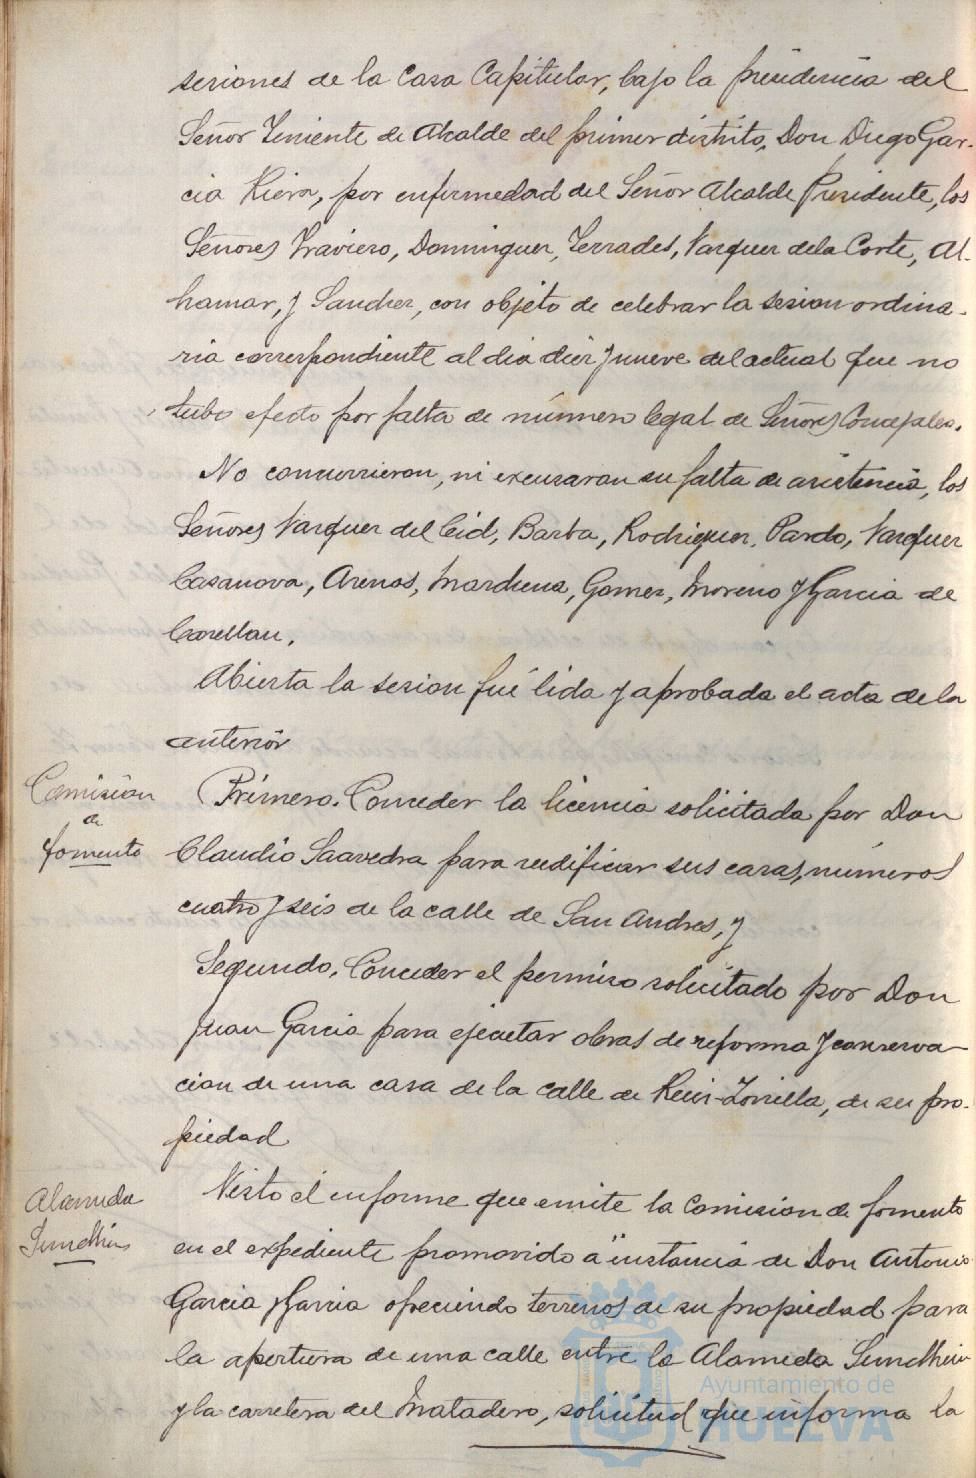 sesiones de la Casa Capitular, bajo la presidencia del
Señor Teniente de Alcalde del primer distrito, Don Diego Gar-
cia Riera, por enfermedad del Señor Alcalde Presidente, los
Señores Traviero, Dominguez, Terrades, Vazquez de la Corte, Al-
hamar, y Sanchez, con objeto de celebrar la sesion ordina-
ria correspondiente al dia diez y nueve del actual que no
tubo efecto por falta de número legal de Señores Concejales.
No concurrieron, ni excusaron su falta de asistencia, los
Señores Vazquez del Cid, Barba, Rodriguez, Pardo, Vazquez
Casanova, Arenas, Gomez, Moreno y Garcia de
Abierta la sesion fué lida y aprobada el acta de la
anterior
Comisión
de
fomento
Primero. Conceder la licencia solicitada por Don
Claudio Saavedra para redificar sus casas, números
cuatro y seis de la calle de San Andres, y
Segundo. Conceder el permiso solicitado por Don
Juan Garcia para ejecutar obras de reforma y conserva-
cion de una casa de la calle de Ruiz-Zorrilla, de su pro-
piedad
Alameda
Sundheim
Visto el informe que emite la Comision de fomento
en el expediente promovido a instancia de Don Antonio
Garcia y Garcia ofreciendo terrenos de su propiedad para
la apertura de una calle entre la Alameda Sundheim
y la carretera del Matadero, solicitud que informa la
Ayuntamiento de
HUELVA